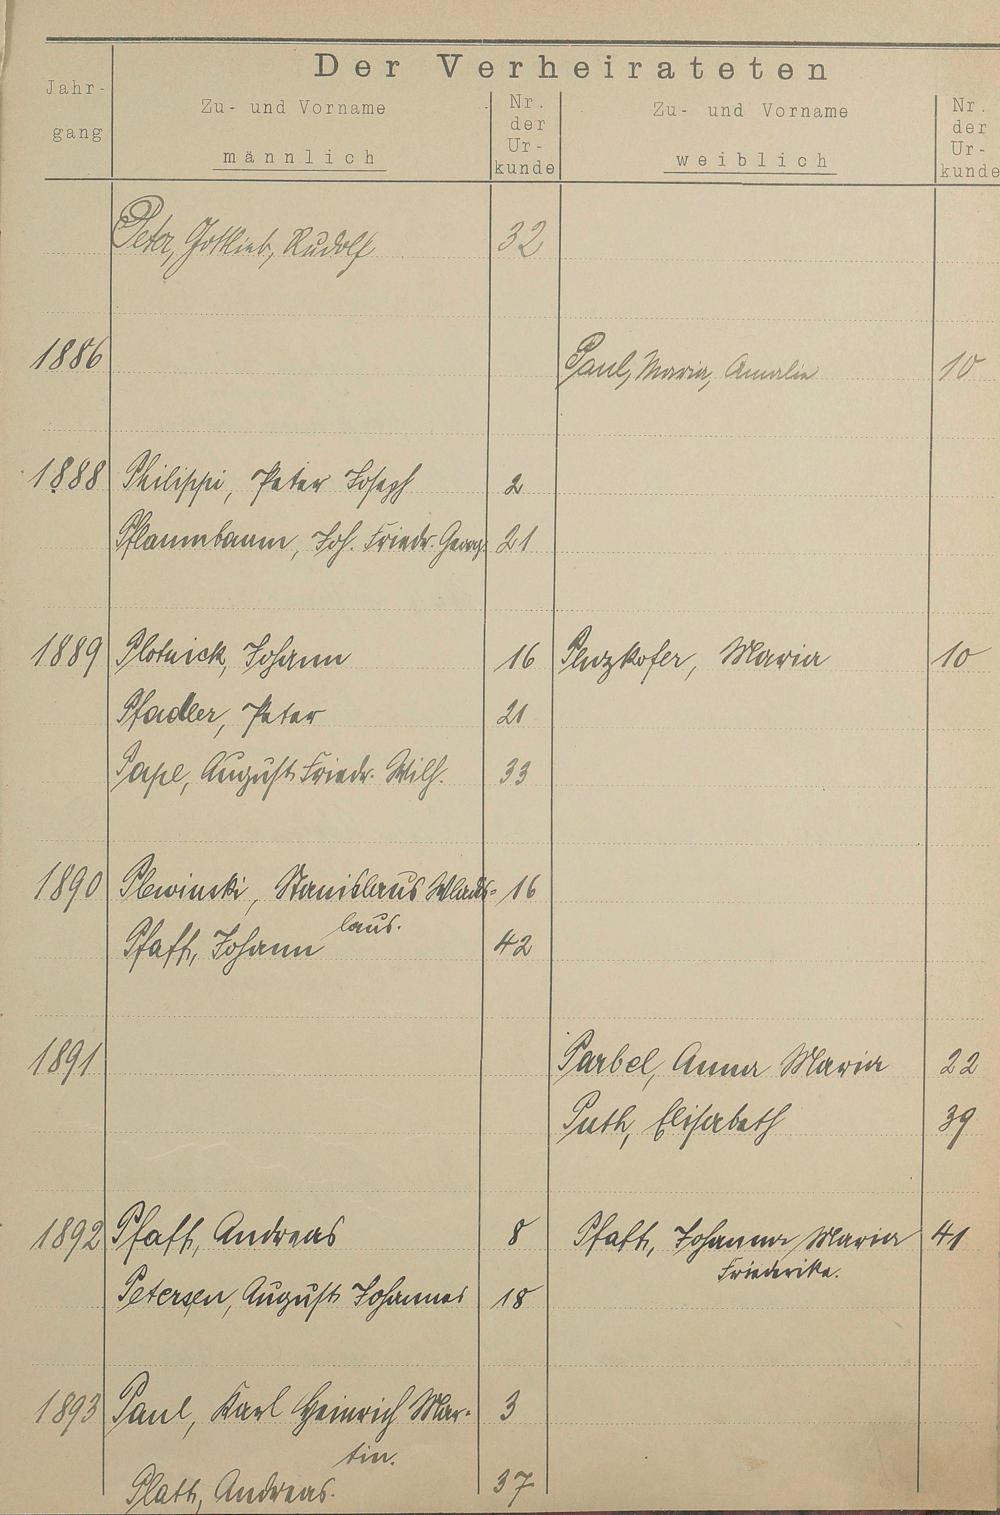 Der Verheirateten
Jahr-
gang
Zu- und Vorname
männlich
Nr.
der
Ur-
kunde
Zu- und Vorname
weiblich
Nr.
der
Ur-
kunde
Peter, Gottlieb, Rudolf 32
1886 Paul, Maria, Amalie 10
1888 Philippi, Peter Joseph 2
Pflaumbaum, Joh. Friedr. Georg 21
1889 Plotnick, Johann 16 Maria 10
Pfadler, Peter 21
Pape, August Friedr. Wilh. 33
1890 Plewinski, Stanislaus Wlads- 16
laus.
Pfaff, Johann 42
1891 Parbel, Anna Maria 22
Puth, Elisabeth 39
1892 Pfaff, Andreas 8 Pfaff, Johanna Maria 41
Friederike.
Petersen, August Johannes 18
1893 Paul, Karl Heinrich Mar- 3
tin.
Plath, Andreas. 37